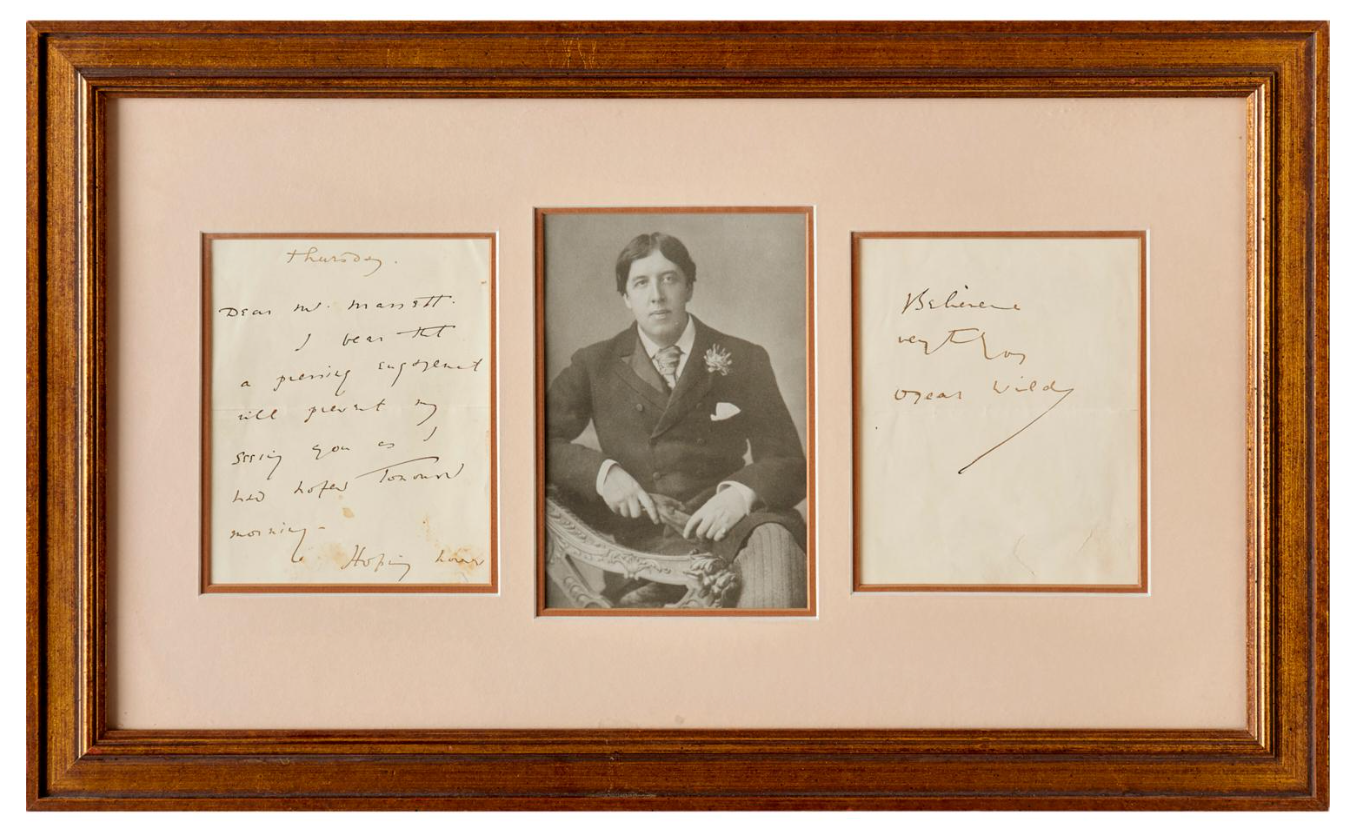 Thursday.
Dear Mr. Marrett.
I fear that
a pressing engagement
will prevent my
seeing you as I
had hoped tomorrow
morning -
Hoping
Believe me
very truly yours
Oscar Wilde